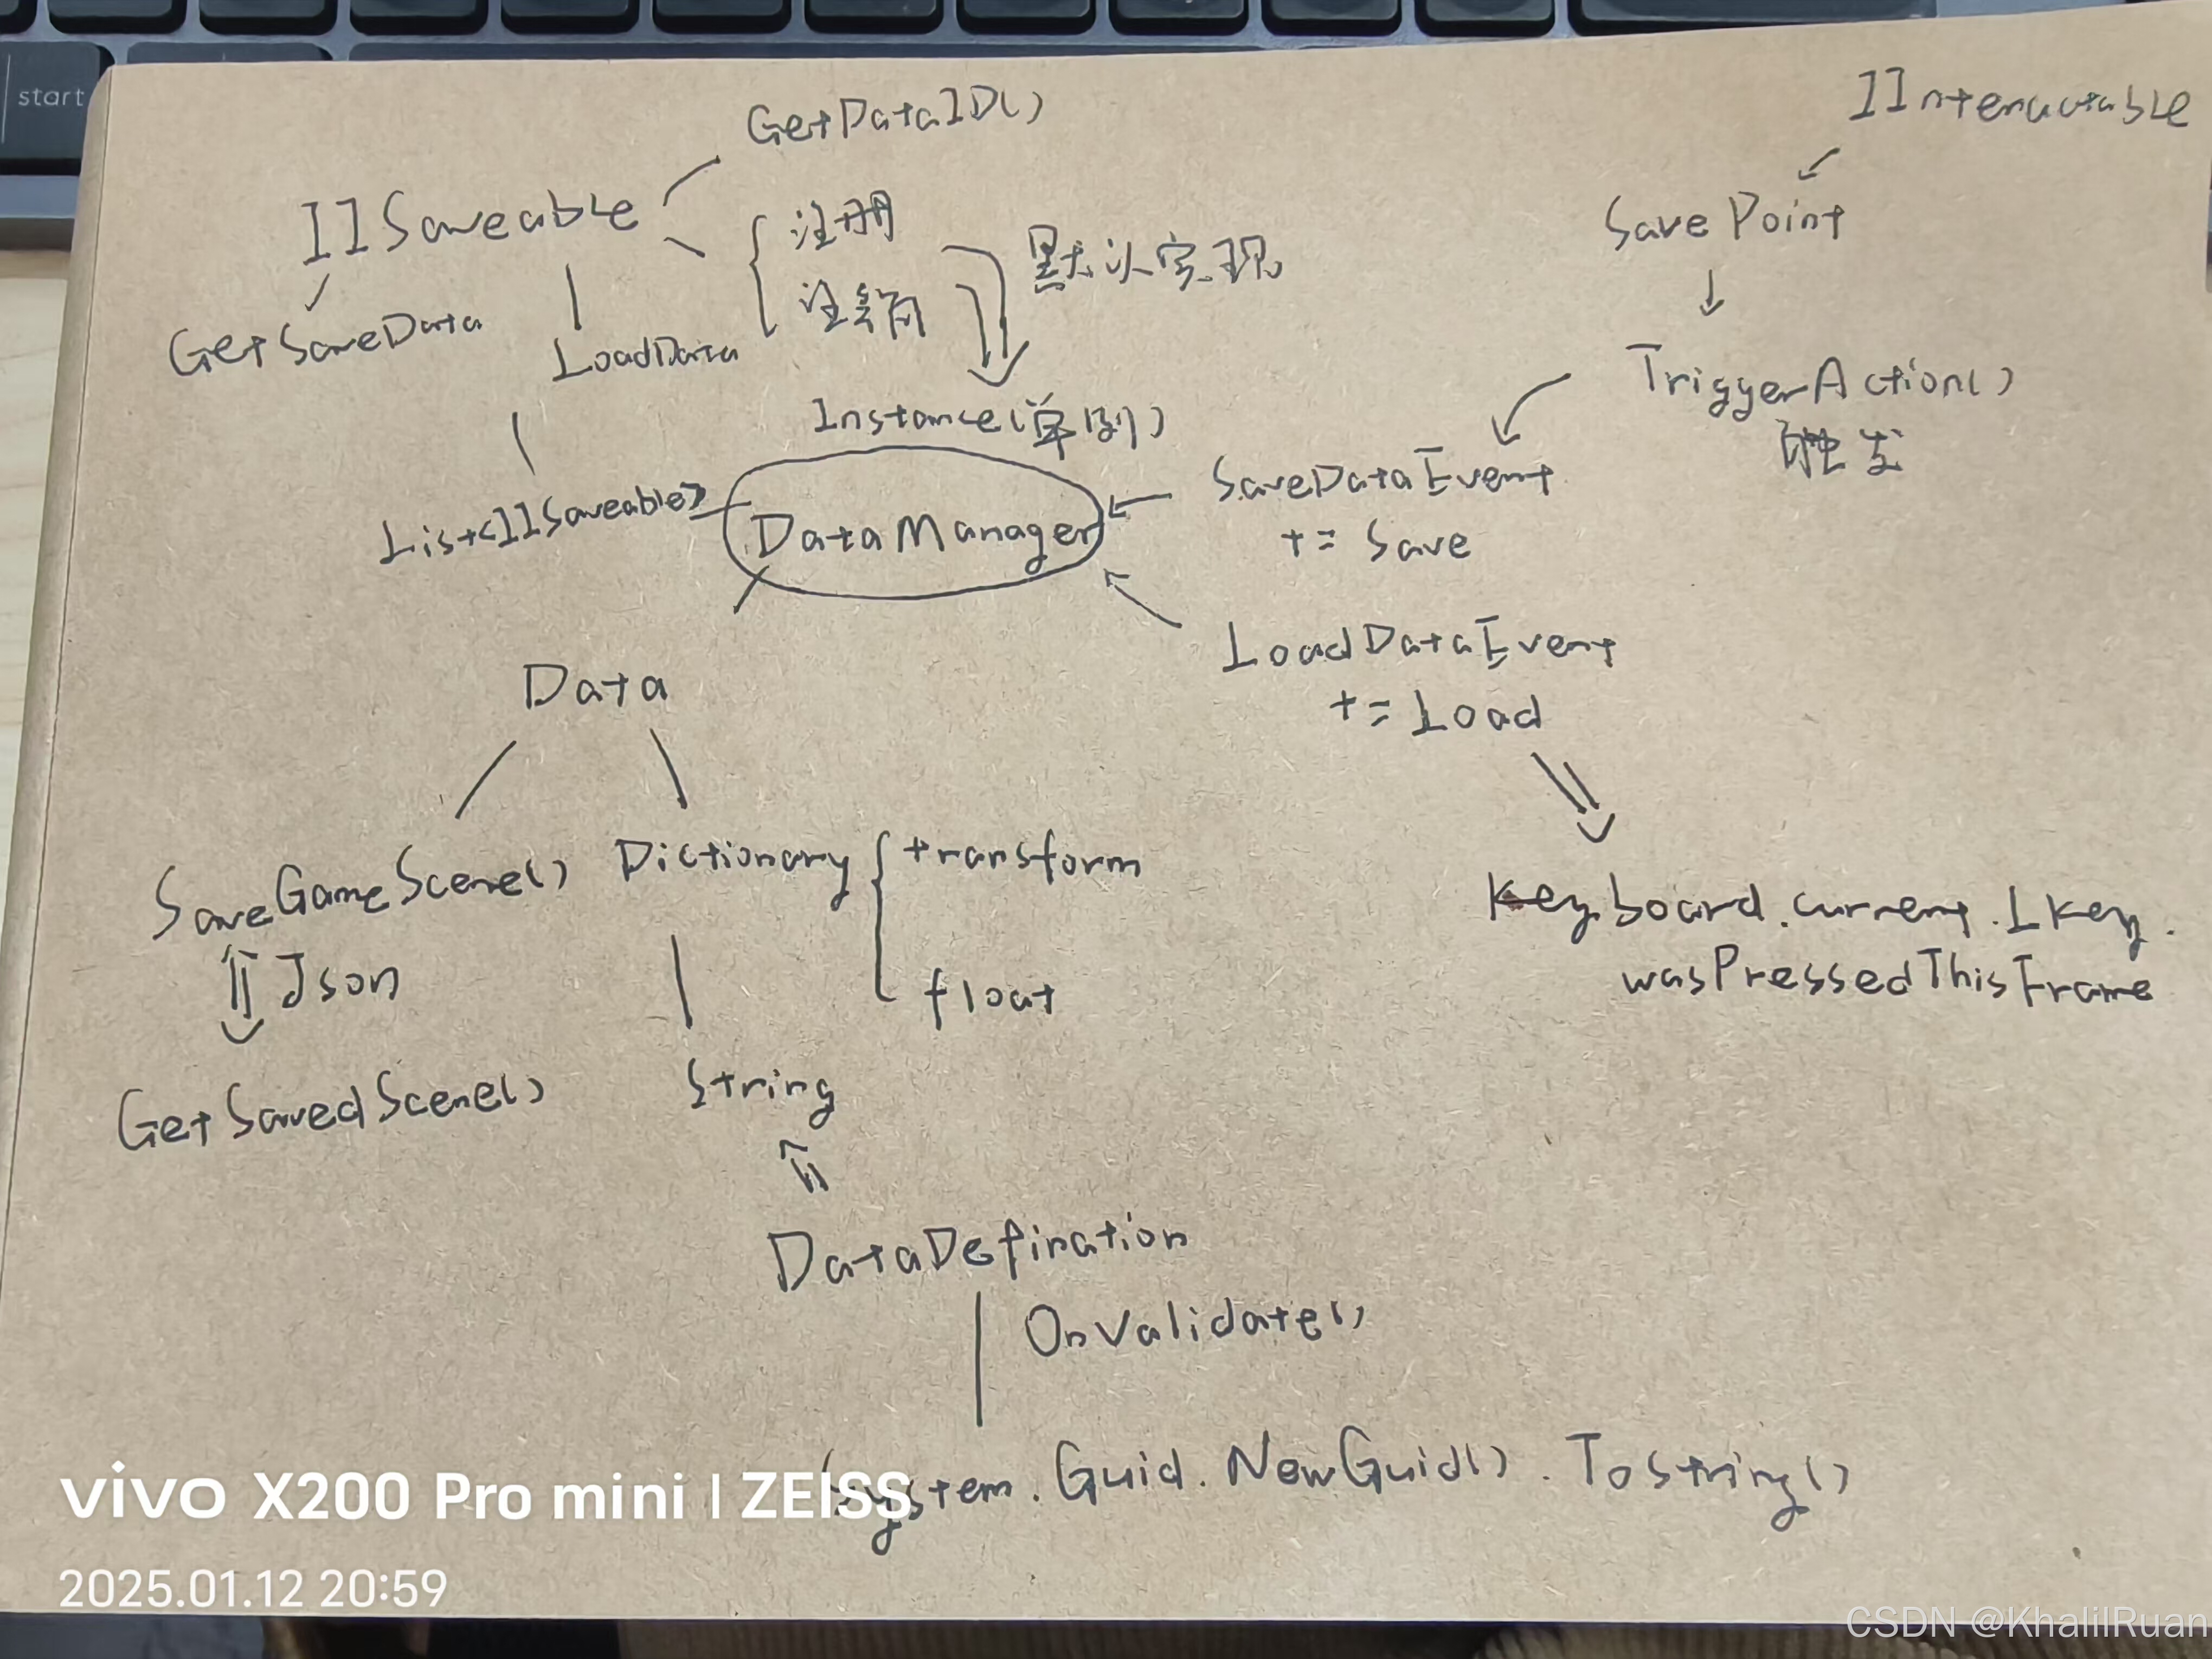 start
GetDataID()
IInteractable
IISaveable
注册
SavePoint
注销
默认实现
GetSaveData
LoadData
TriggerAction()
触发
Instance(单例)
List<IISaveable>
DataManager
SaveDataEvent
+= Save
LoadDataEvent
+= Load
Data
SaveGameScene()
Dictionary
transform
float
Keyboard.current.Lkey.
wasPressedThisFrame
Json
GetSavedScene()
String
DataDefination
OnValidate()
System.Guid.NewGuid().ToString()
vivo X200 Pro mini | ZEISS
2025.01.12 20:59
CSDN @KhalilRuan